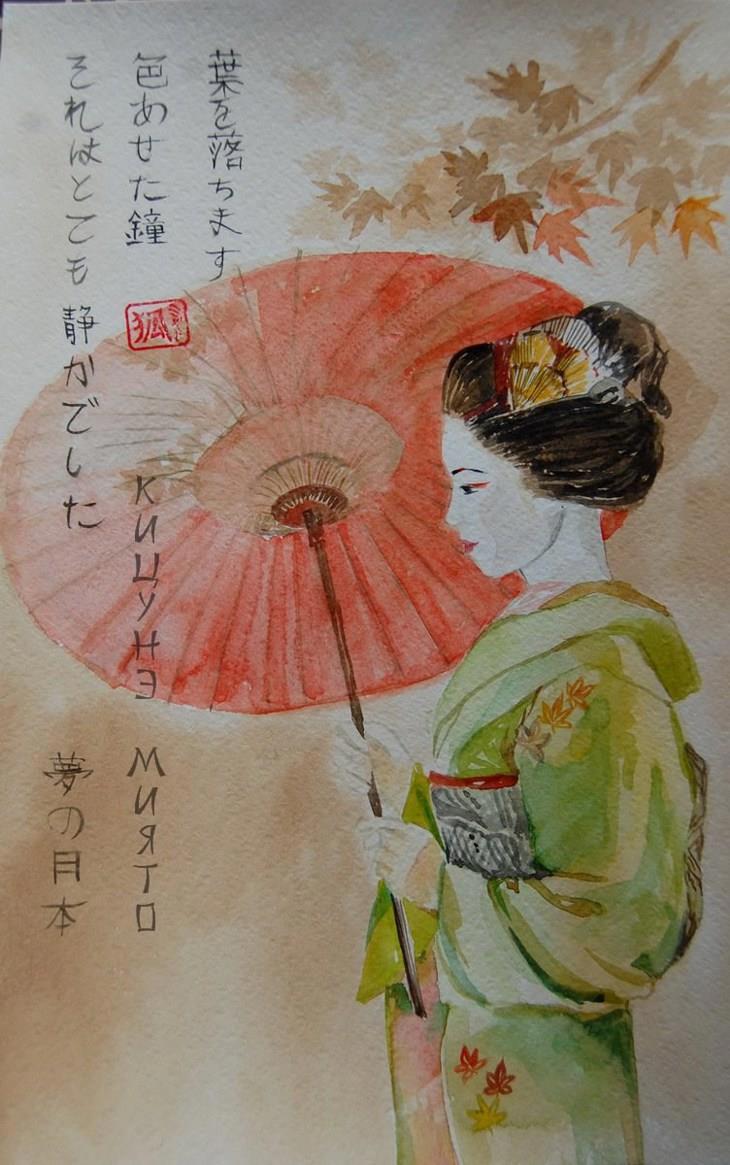 葉を落ちます
色あせた鐘
それはとても静かでした
狐
КИЦУНЭ МИЯТО
夢の日本